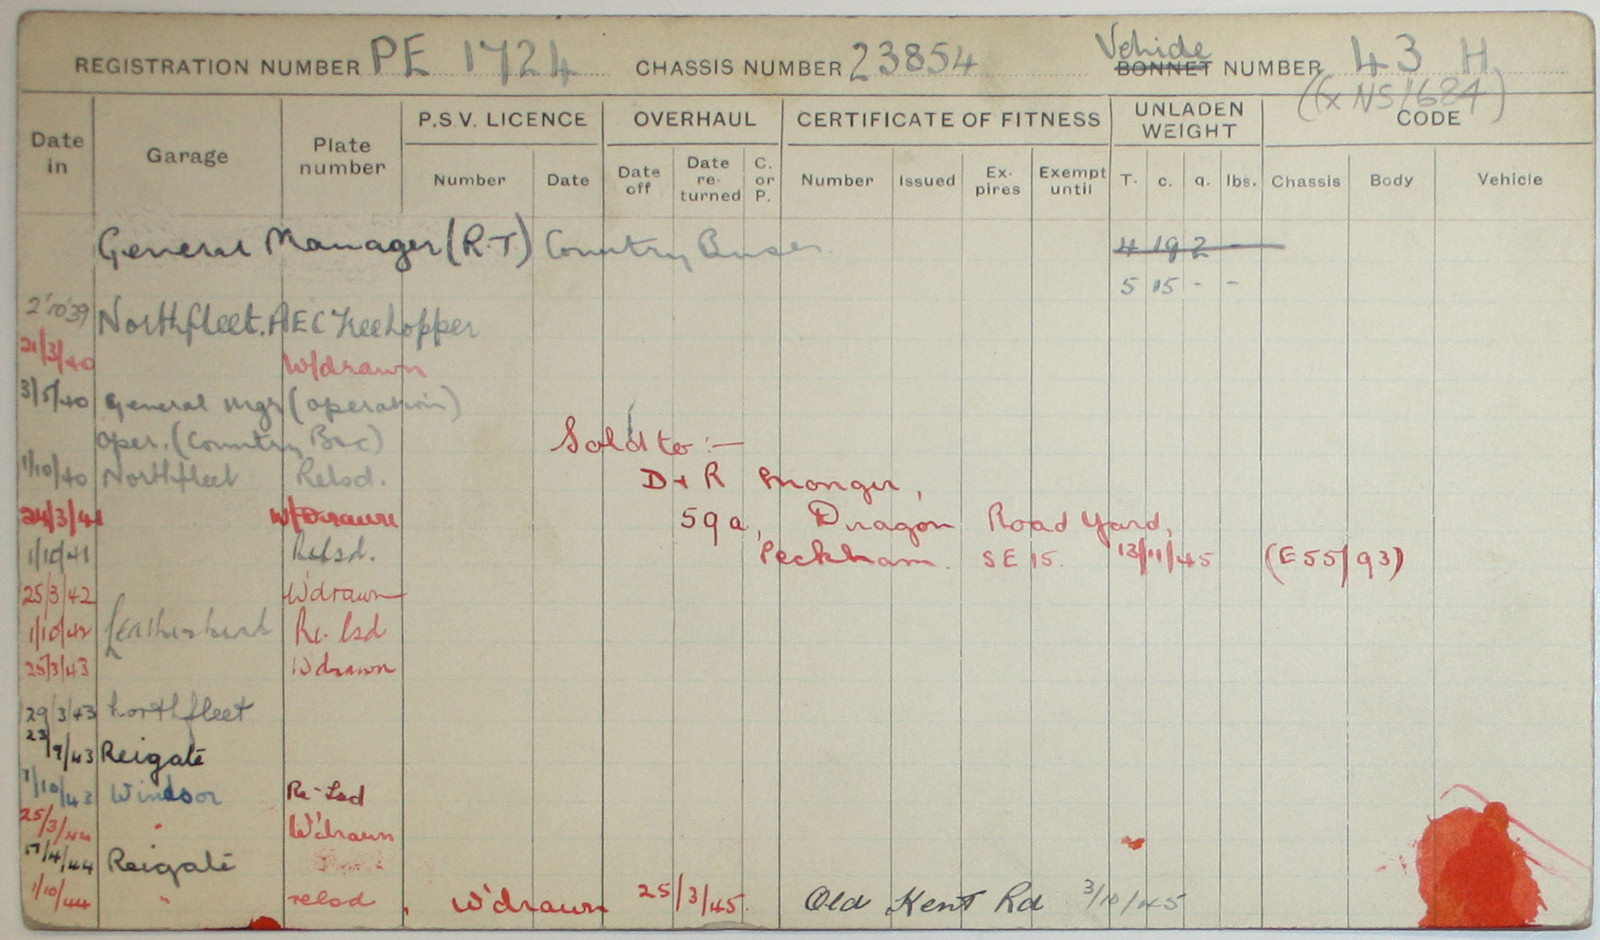 REGISTRATION NUMBER PE 1724 CHASSIS NUMBER 23854 Vehicle BONNET NUMBER 43 H
(Ex NS1684)
Date in Garage Plate number P.S.V. LICENCE OVERHAUL CERTIFICATE OF FITNESS UNLADEN WEIGHT CODE
Number Date Date off Date re-turned C. or P. Number Issued Ex-pires Exempt until T. c. q. lbs. Chassis Body Vehicle
General Manager (R.T) Country Buses 4 19 2 -
5 15 - -
2.10.39 Northfleet. AEC Treelopper
21/3/40 W/drawn
3/5/40 General Mgr (operation)
Oper. (Country Bus) Sold to :-
1/10/40 Northfleet Relsd. D & R Monger,
24/3/41 W/Drawn 59a, Dragon Road Yard,
1/10/41 Relsd. Peckham. SE 15. 13/11/45 (E55/93)
25/3/42 W'drawn
1/10/42 Leatherhead Re-lsd
25/3/43 W'drawn
29/3/43 Northfleet
23/9/43 Reigate
1/10/43 Windsor Re-Lsd
25/3/44 " W'drawn
/4/44 Reigate
1/10/44 " relsd, W'drawn 25/3/45. Old Kent Rd 3/10/45